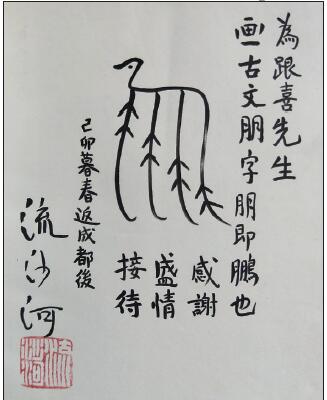 為跟喜先生
画古文朋字朋即鵬也
感謝
盛情
接待
己卯暮春返成都後
流沙河